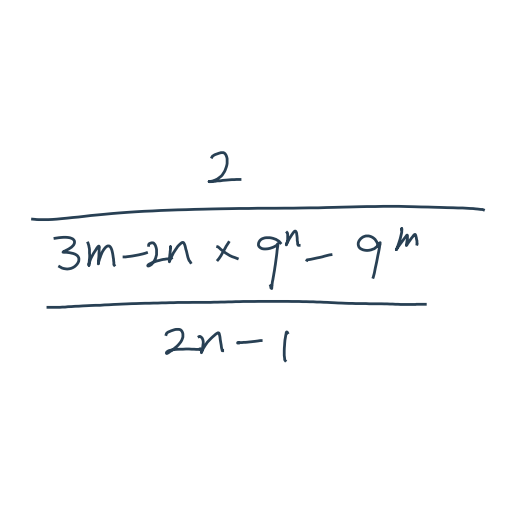 2
3m-2n × 9^n - 9^m
2n-1